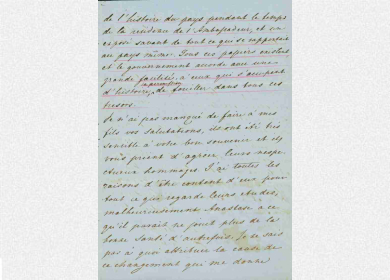 de l'histoire du pays pendant le temps
de la residence de l'Ambassadeur, et un
exposé savant de tout ce qui se rapportait
au pays même. Tous ces papiers existent
et le gouvernement accorde avec une
grande facilité, à ceux qui s'occupent
d'histoire, de fouiller dans tous ces
tresors.
Je n'ai pas manqué de faire à mes
fils vos salutations, ils ont été très
sensible à votre bon souvenir et ils
vous prient d'agréer leurs respe-
ctueux hommages. J'ai toutes les
raisons d'être content d'eux pour
tout ce que regarde leurs études,
malheureusement Anastase à ce
qu'il parait ne jouit plus de la
bonne santé d'autrefois. Je ne sais
pas à quoi attribuer la cause de
ce changement qui me donne